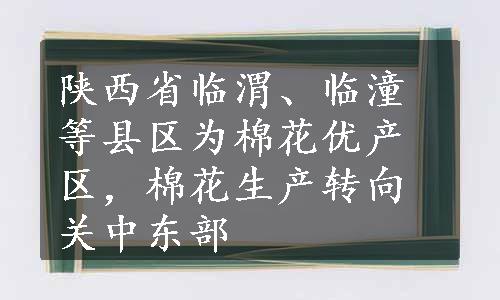 陕西省临渭、临潼
等县区为棉花优产
区，棉花生产转向
关中东部